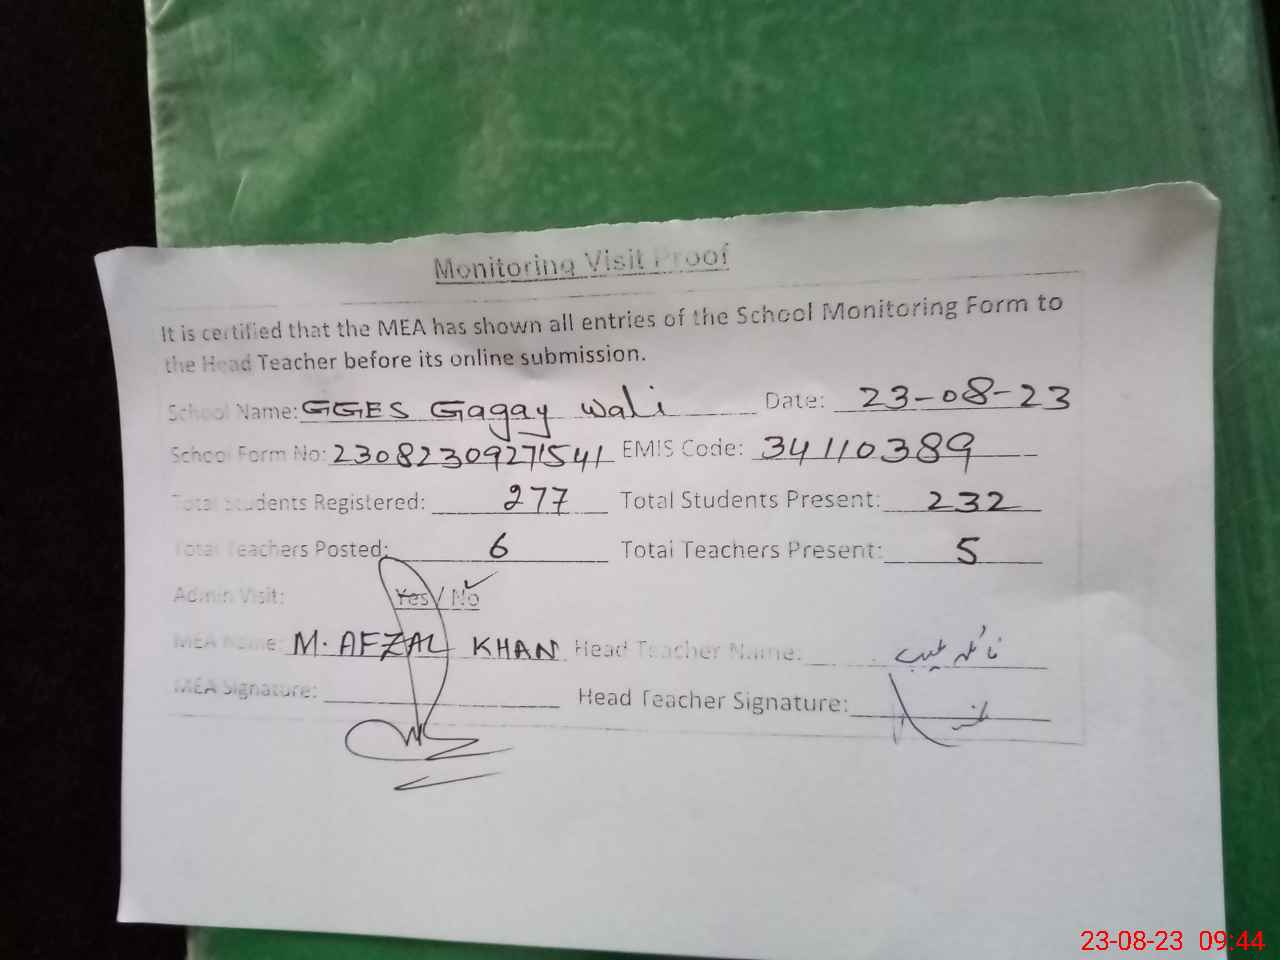 Monitoring Visit Proof
It is certified that the MEA has shown all entries of the School Monitoring Form to
the Head Teacher before its online submission.
School Name: GGES Gagay wali Date: 23-08-23
School Form No: 23082309271541 EMIS Code: 34110389
Total Students Registered: 277 Total Students Present: 232
Total Teachers Posted: 6 Total Teachers Present: 5
Admin Visit: Yes / No
MEA Name: M. AFZAL KHAN Head Teacher Name:
MEA Signature: Head Teacher Signature:
23-08-23 09:44